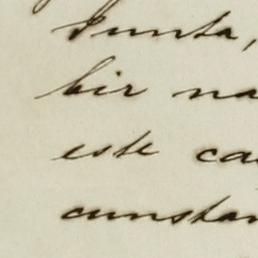 Junta,
bir na
este ca
cunstan